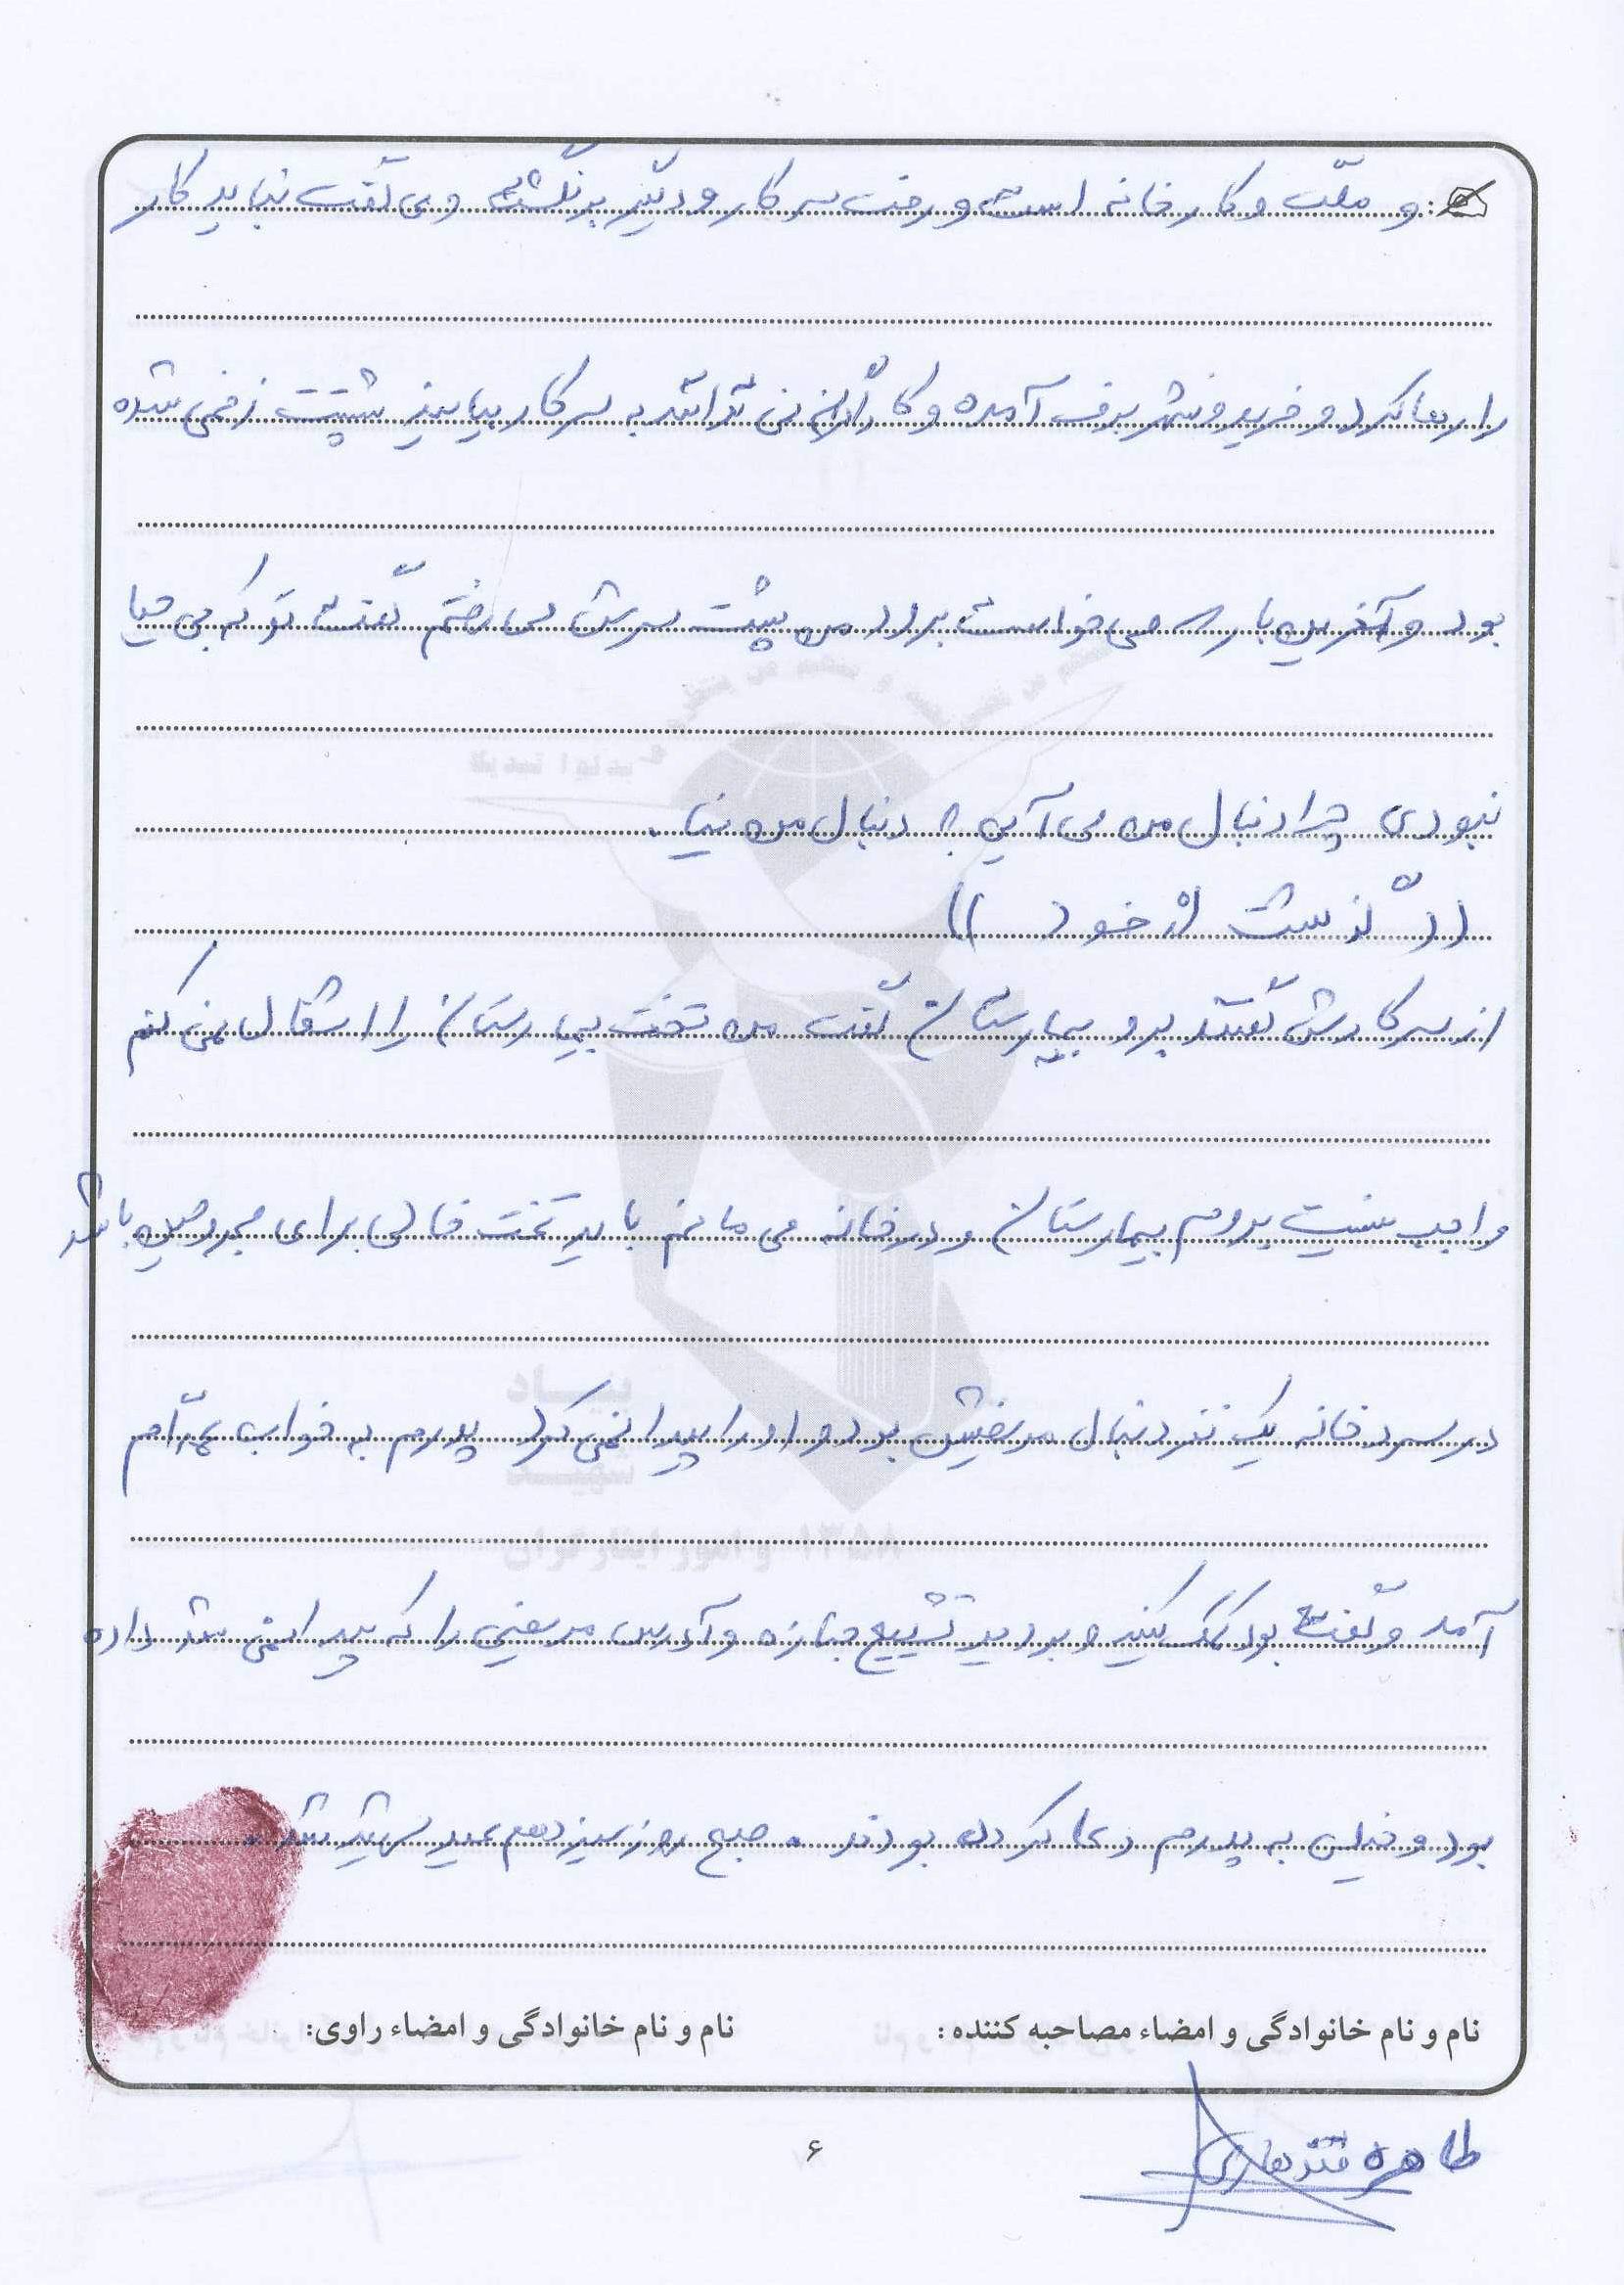 و ملت و کارخانه است و رفت سر کار و دیگر برنگشت و می گفت نباید کار
را رها کرد و فریدونشهر برف آمده و کارگران نمی توانند به سر کار بیایند پشت زخمی شده
بود و آخرین بار که می خواست برود من پشت سرش می رفتم گفت تو که بی حیا
نبودی چرا دنبال من می آیی؟ دنبال من نیا.
((گذشت از خود))
از سر کارش گفتند برو بیمارستان گفت من تخت بیمارستان را اشغال نمی کنم
واجب نیست بروم بیمارستان و در خانه می مانم باید تخت خالی برای مجروحین باشد
در سردخانه یک نفر دنبال مریضش بود و او را پیدا نمی کرد پدرم به خواب
آمد و گفت بود کمک کنید و بروید تشییع جنازه و آدرس مریضی را که پیدا نمی شد داده
بود و خیلی به پدرم دعا کرده بودند. صبح روز سیزدهم عید شهید شد.
نام و نام خانوادگی و امضاء مصاحبه کننده: نام و نام خانوادگی و امضاء راوی:
طاهره قندهاری
۶